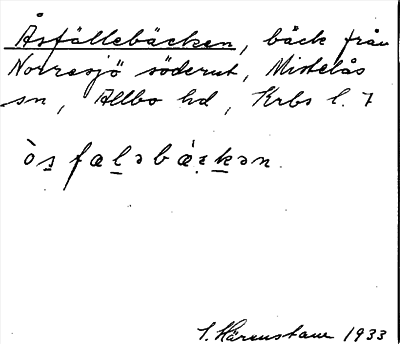 Åsfällebäcken, bäck från
Norresjö söderut, Mistelås
sn, Allbo hd, Krbs l. 7
òs̱ fɑḻəbáẹḵən.
S. Härenstam 1933